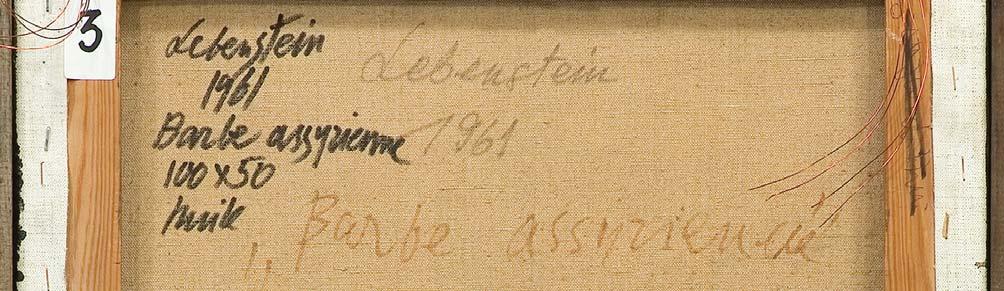 3
Lebenstein
1961
Barbe assyrienne
100 x 50
huile
Lebenstein
1961
„Barbe assyrienne"